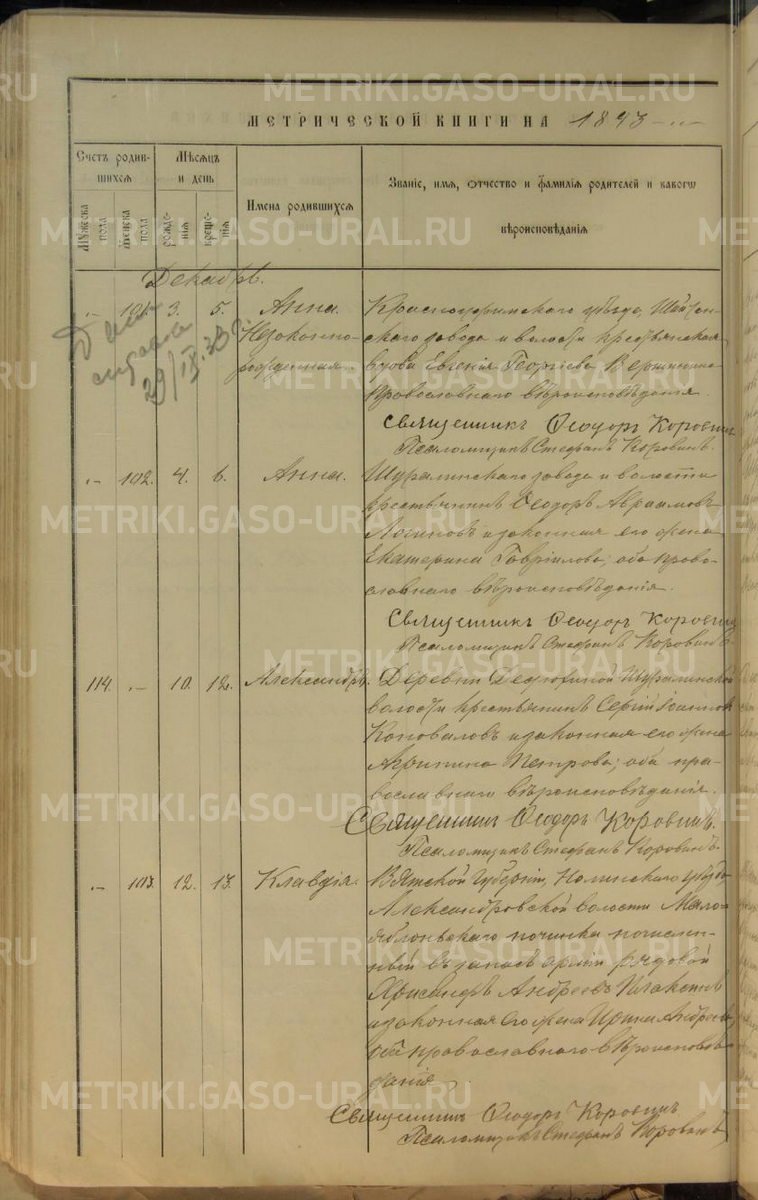 МЕТРИЧЕСКОЙ КНИГИ НА 1893
Счетъ родив-
шихся
Мѣсяцъ
и день
Имена родившихся
Званіе, имя, отчество и фамилія родителей и какого
вѣроисповѣданія
Мужеска
пола
Женска
пола
рожде-
нія
креще-
нія
Декабрь.
101. 3. 5. Анна. Красноуфимскаго уѣзда,
Незаконно- скаго завода и волости крестьянская
рожденная. вдова Евгенія Георгіева
православнаго вѣроисповѣданія.
29/IX
Священникъ Ѳеодоръ Коровинъ
Псаломщикъ Стефанъ Коровинъ.
102. 4. 6. Анна. Шуралинскаго завода и волости
крестьянинъ Ѳеодоръ Авраамовъ
Логиновъ и законная его жена
Екатерина Гавріилова; оба право-
славнаго вѣроисповѣданія.
Священникъ Ѳеодоръ Коровинъ
Псаломщикъ Стефанъ Коровинъ
114. 10. 12. Александръ. Деревни Шуралинской
волости крестьянинъ Сергій Іоанновъ
Коноваловъ и законная его жена
Агрипина Петрова; оба пра-
вославнаго вѣроисповѣданія.
Священникъ Ѳеодоръ Коровинъ.
Псаломщикъ Стефанъ Коровинъ.
103. 12. 13. Клавдія. Вятской губерніи, Нолинскаго уѣзда
Александровской волости Мало-
починка
въ запасъ арміи рядовой
Андреевъ
и законная его жена Ирина Андреева,
оба православнаго вѣроисповѣ-
данія
Священникъ Ѳеодоръ Коровинъ
Псаломщикъ Стефанъ Коровинъ
METRIKI.GASO-URAL.RU